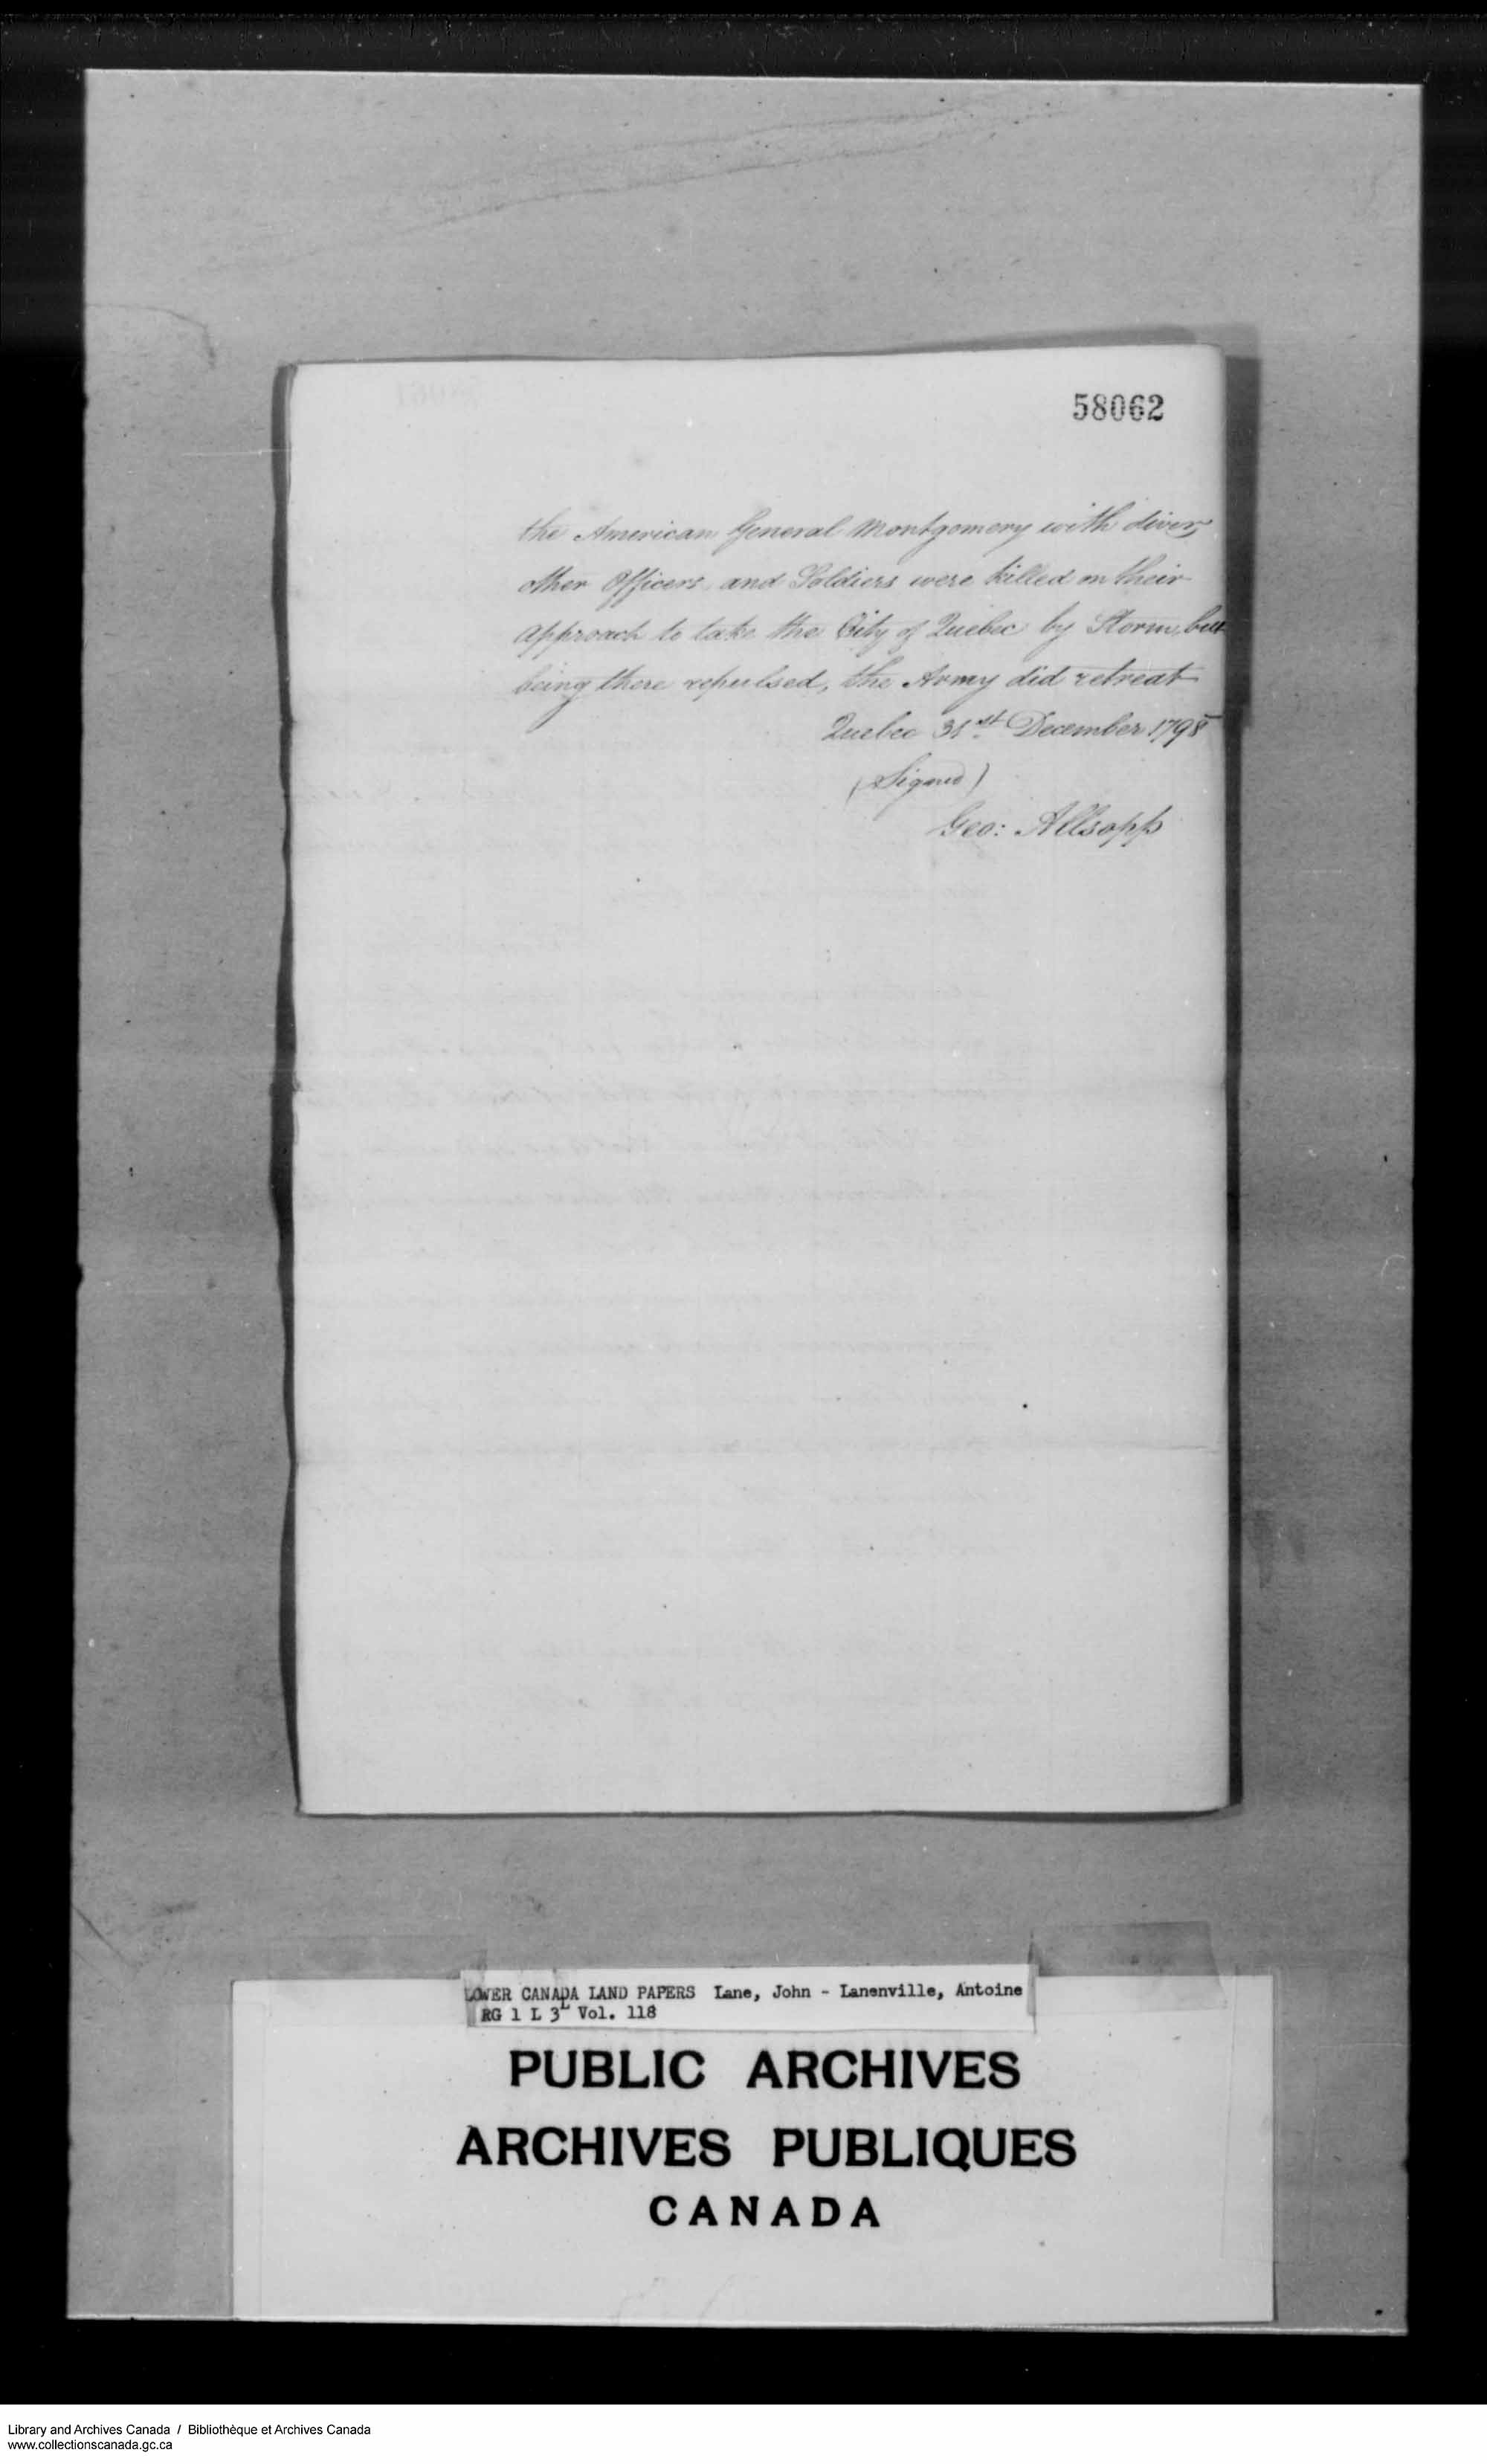 58062
the American General Montgomery with divers
other Officers and Soldiers were killed on their
approach to take the City of Quebec by Storm, but
being there repulsed, the Army did retreat
Quebec 31st December 1798
(Signed)
Geo: Allsopp
LOWER CANADA LAND PAPERS Lane, John - Lanenville, Antoine
RG 1 L 3L Vol. 118
PUBLIC ARCHIVES
ARCHIVES PUBLIQUES
CANADA
Library and Archives Canada / Bibliothèque et Archives Canada
www.collectionscanada.gc.ca